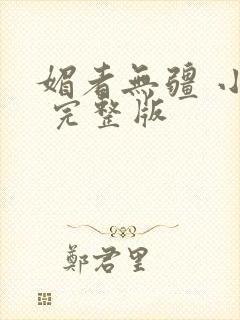 媚者無疆 小
完整版
鄭君里